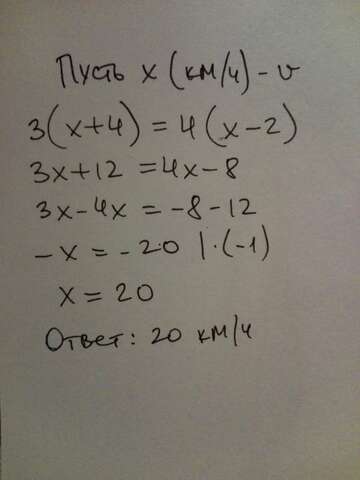 Пусть x (км/ч) - v
3(x+4) = 4(x-2)
3x+12 = 4x-8
3x-4x = -8-12
-x = -20 |·(-1)
x = 20
Ответ: 20 км/ч